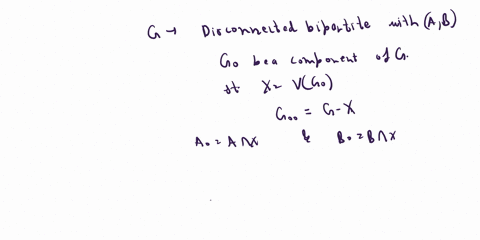 G → Disconnected bipartite with (A, B)
G₀ be a component of G.
st X = V(G₀)
G₀₀ = G - X
A₀ = A ∩ X & B₀ = B ∩ X